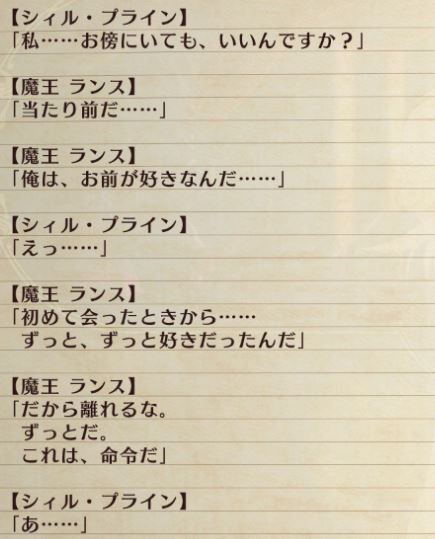 【シィル・プライン】
「私……お傍にいても、いいんですか？」
【魔王 ランス】
「当たり前だ……」
【魔王 ランス】
「俺は、お前が好きなんだ……」
【シィル・プライン】
「えっ……」
【魔王 ランス】
「初めて会ったときから……
ずっと、ずっと好きだったんだ」
【魔王 ランス】
「だから離れるな。
ずっとだ。
これは、命令だ」
【シィル・プライン】
「あ……」